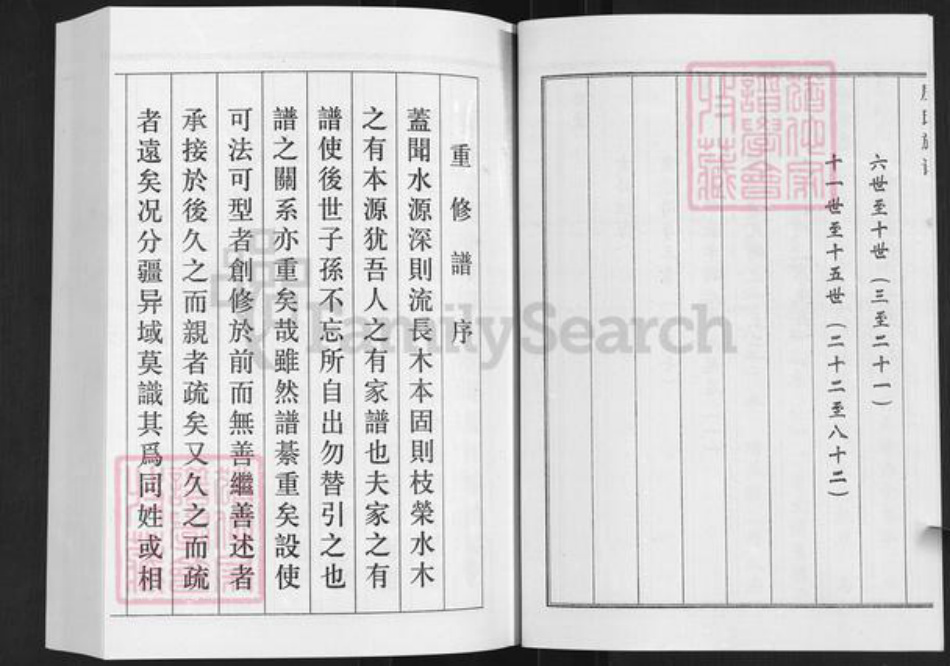 六世至十世（三至二十一）
十一世至十五世（二十二至八十二）
重修譜序
蓋聞水源深則流長木本固則枝榮水木
之有本源犹吾人之有家譜也夫家之有
譜使後世子孫不忘所自出勿替引之也
譜之關系亦重矣哉雖然譜綦重矣設使
可法可型者創修於前而無善繼善述者
承接於後久之而親者疏矣又久之而疏
者遠矣况分疆异域莫識其爲同姓或相
FamilySearch